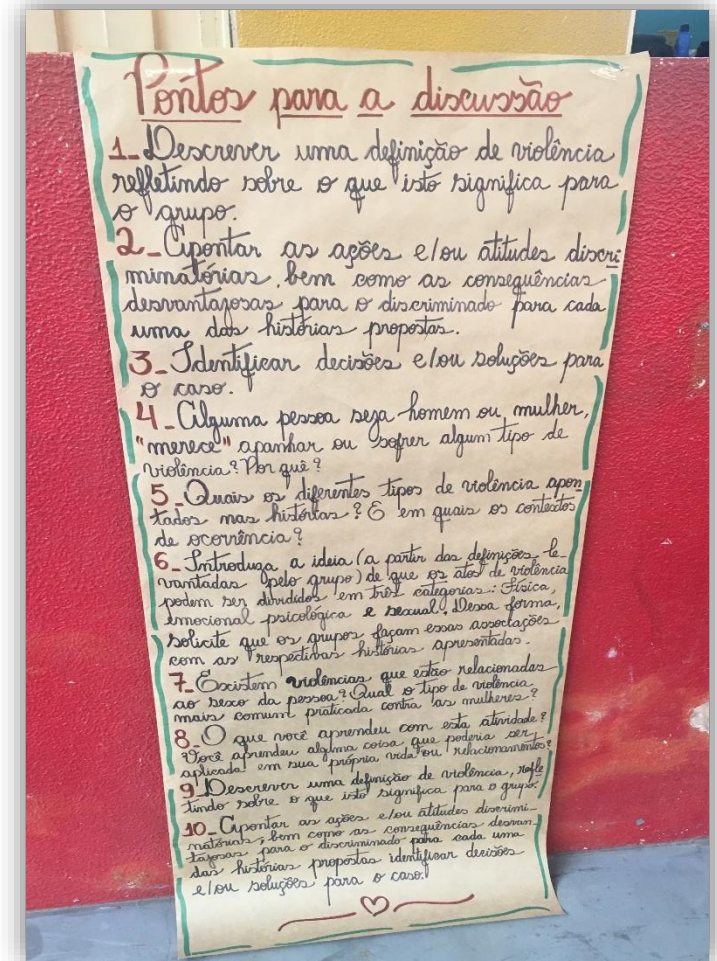 Pontos para a discussão
1_Descrever uma definição de violência
refletindo sobre o que isto significa para
o grupo.
2_Apontar as ações e/ou atitudes discri
minatórias, bem como as consequências
desvantajosas para o discriminado para cada
uma das histórias propostas.
3_Identificar decisões e/ou soluções para
o caso.
4_Alguma pessoa seja homem ou mulher,
"merece" apanhar ou sofrer algum tipo de
violência? Por quê?
5_Quais os diferentes tipos de violência apon
tados nas histórias? E em quais os contextos
de ocorrência?
6_Introduza a ideia (a partir das definições le_
vantadas pelo grupo) de que os atos de violência
podem ser divididos em três categorias: Física,
emocional psicológica e sexual. Dessa forma,
solicite que os grupos façam essas associações
com as respectivas histórias apresentadas.
7_Existem violências que estão relacionadas
ao sexo da pessoa? Qual o tipo de violência
mais comum praticada contra as mulheres?
8_O que você aprendeu com esta atividade?
Você aprendeu alguma coisa que poderia ser
aplicada em sua própria vida ou relacionamentos?
9_Descrever uma definição de violência, refle
tindo sobre o que isto significa para o grupo.
10_Apontar as ações e/ou atitudes discrimi_
natórias, bem como as consequências desvan
tajosas para o discriminado para cada uma
das histórias propostas identificar decisões
e/ou soluções para o caso.